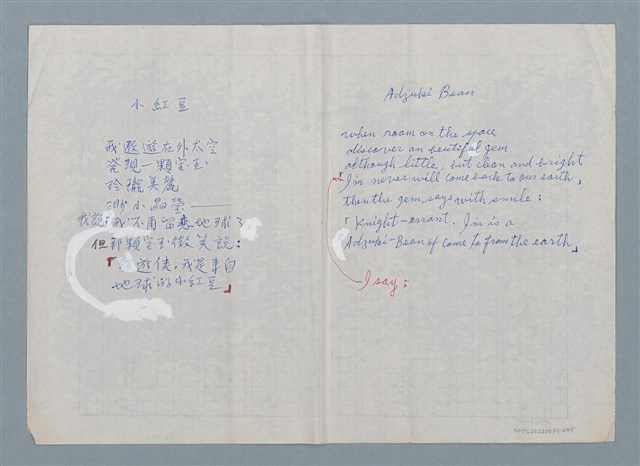 小紅豆
我遨遊在外太空
發現一顆宝玉
玲瓏美麗
渺小晶瑩——
我說：我不再留恋地球了
但那顆宝玉微笑說：
「遊俠，我是来自
地球的小紅豆」
Adzuki Bean
when room on the space
discover an beutiful gem
although little, but clean and bright
「I'm never will come back to our earth」
then the gem says with smile :
「Knight-errant. I'm is a
Adzuki-Bean of come to from the earth」
I say :